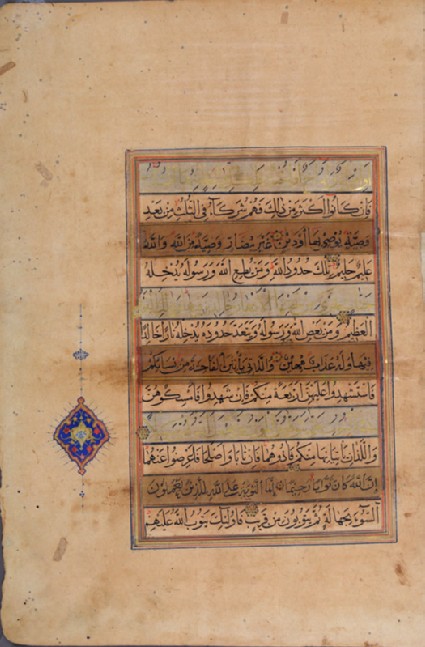 فان كانوا اكثر من ذلك فهم شركاء فى الثلث من بعد
وصية يوصى بها او دين غير مضار وصية من الله والله
عليم حليم تلك حدود الله ومن يطع الله ورسوله يدخله
العظيم ومن يعص الله ورسوله ويتعد حدوده يدخله نارا خالدا
فيها وله عذاب مهين والتى ياتين الفاحشة من نسائكم
فاستشهدوا عليهن اربعة منكم فان شهدوا فامسكوهن
والذان ياتيانها منكم فاذوهما فان تابا واصلحا فاعرضوا عنهما
ان الله كان توابا رحيما انما التوبة على الله للذين يعملون
السوء بجهالة ثم يتوبون من قريب فاولئك يتوب الله عليهم